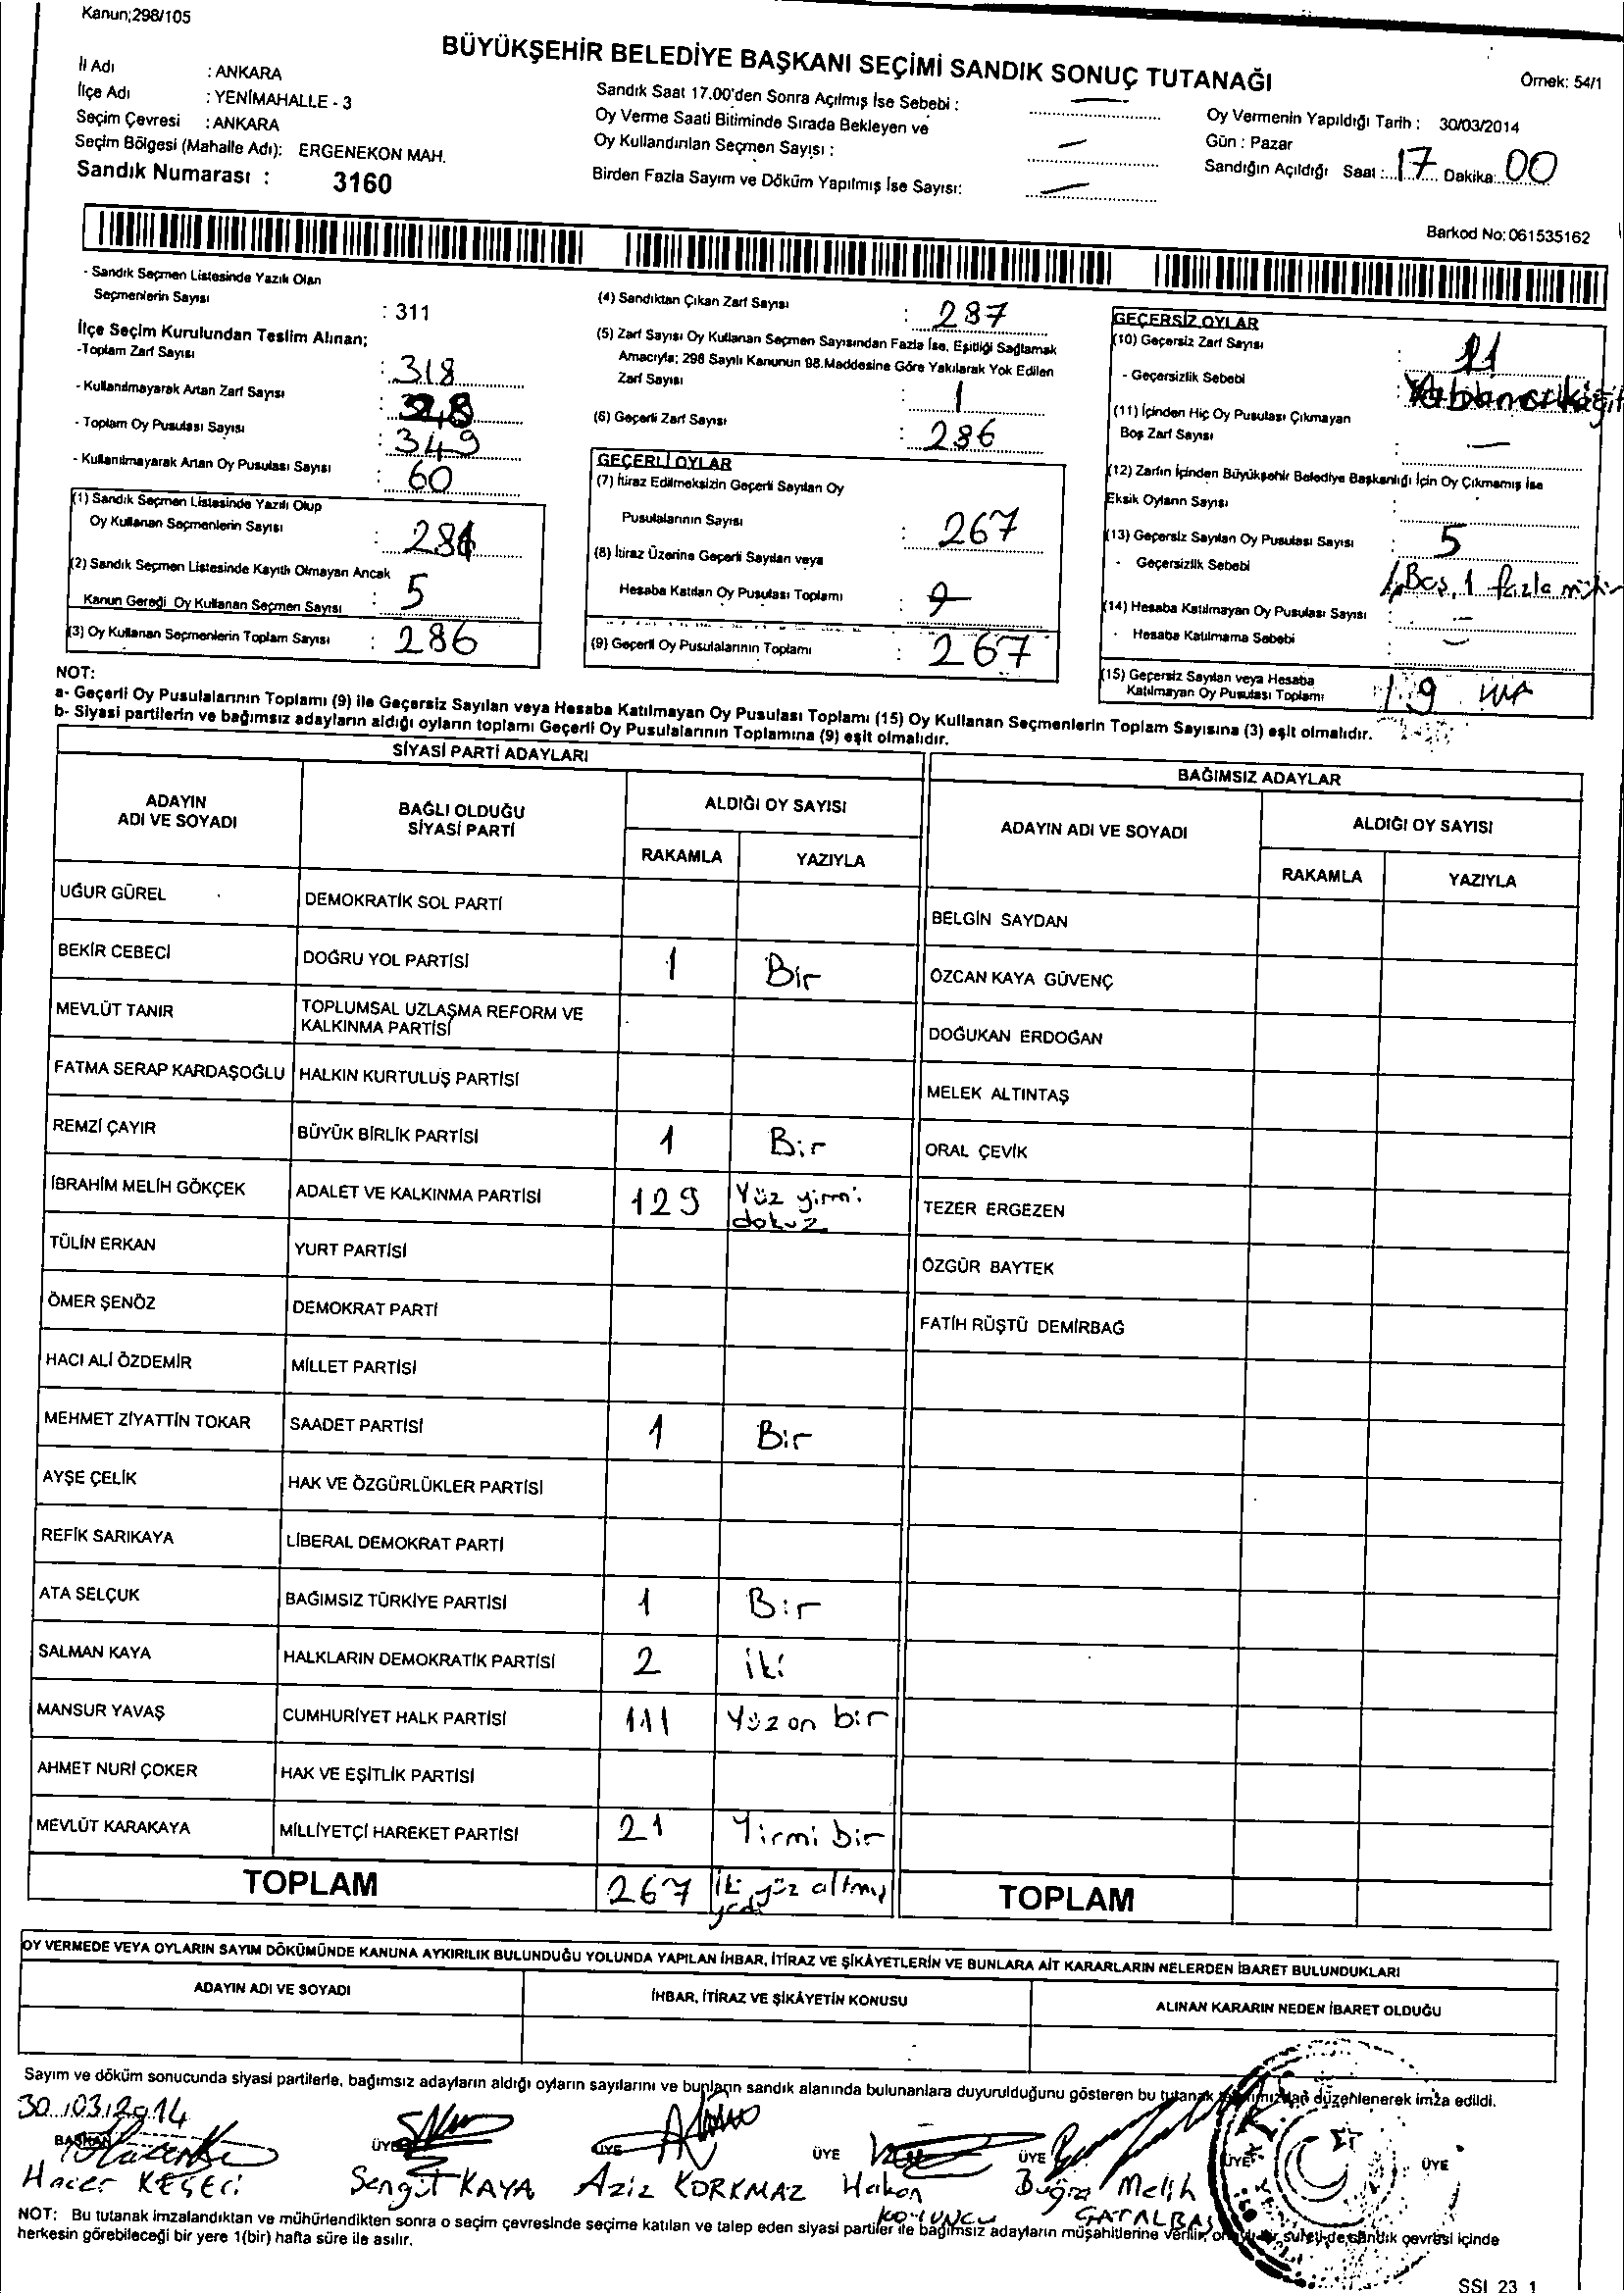 Kanun;298/105
BÜYÜKŞEHİR BELEDİYE BAŞKANI SEÇİMİ SANDIK SONUÇ TUTANAĞI
Örnek: 54/1
İl Adı : ANKARA
İlçe Adı : YENİMAHALLE - 3
Seçim Çevresi : ANKARA
Seçim Bölgesi (Mahalle Adı): ERGENEKON MAH.
Sandık Numarası : 3160
Sandık Saat 17.00'den Sonra Açılmış İse Sebebi : —
Oy Verme Saati Bitiminde Sırada Bekleyen ve
Oy Kullandırılan Seçmen Sayısı : —
Birden Fazla Sayım ve Döküm Yapılmış İse Sayısı: —
Oy Vermenin Yapıldığı Tarih : 30/03/2014
Gün : Pazar
Sandığın Açıldığı Saat : 17 Dakika: 00
Barkod No: 061535162
- Sandık Seçmen Listesinde Yazılı Olan
Seçmenlerin Sayısı : 311
İlçe Seçim Kurulundan Teslim Alınan;
-Toplam Zarf Sayısı : 318
- Kullanılmayarak Artan Zarf Sayısı :
- Toplam Oy Pusulası Sayısı : 349
- Kullanılmayarak Artan Oy Pusulası Sayısı : 60
(1) Sandık Seçmen Listesinde Yazılı Olup
Oy Kullanan Seçmenlerin Sayısı : 281
(2) Sandık Seçmen Listesinde Kayıtlı Olmayan Ancak
Kanun Gereği Oy Kullanan Seçmen Sayısı : 5
(3) Oy Kullanan Seçmenlerin Toplam Sayısı : 286
(4) Sandıktan Çıkan Zarf Sayısı : 287
(5) Zarf Sayısı Oy Kullanan Seçmen Sayısından Fazla İse, Eşitliği Sağlamak
Amacıyla; 298 Sayılı Kanunun 98.Maddesine Göre Yakılarak Yok Edilen
Zarf Sayısı : 1
(6) Geçerli Zarf Sayısı : 286
GEÇERLİ OYLAR
(7) İtiraz Edilmeksizin Geçerli Sayılan Oy
Pusulalarının Sayısı : 267
(8) İtiraz Üzerine Geçerli Sayılan veya
Hesaba Katılan Oy Pusulası Toplamı :
(9) Geçerli Oy Pusulalarının Toplamı : 267
GEÇERSİZ OYLAR
(10) Geçersiz Zarf Sayısı : 11
- Geçersizlik Sebebi : Yabancı kağıt
(11) İçinden Hiç Oy Pusulası Çıkmayan
Boş Zarf Sayısı : —
(12) Zarfın İçinden Büyükşehir Belediye Başkanlığı İçin Oy Çıkmamış İse
Eksik Oyların Sayısı :
(13) Geçersiz Sayılan Oy Pusulası Sayısı : 5
- Geçersizlik Sebebi : 4 Boş, 1 fazla mühür
(14) Hesaba Katılmayan Oy Pusulası Sayısı : —
- Hesaba Katılmama Sebebi : —
(15) Geçersiz Sayılan veya Hesaba
Katılmayan Oy Pusulası Toplamı : 19
NOT:
a- Geçerli Oy Pusulalarının Toplamı (9) ile Geçersiz Sayılan veya Hesaba Katılmayan Oy Pusulası Toplamı (15) Oy Kullanan Seçmenlerin Toplam Sayısına (3) eşit olmalıdır.
b- Siyasi partilerin ve bağımsız adayların aldığı oyların toplamı Geçerli Oy Pusulalarının Toplamına (9) eşit olmalıdır.
SİYASİ PARTİ ADAYLARI
ADAYIN ADI VE SOYADI BAĞLI OLDUĞU SİYASİ PARTİ ALDIĞI OY SAYISI
RAKAMLA YAZIYLA
UĞUR GÜREL DEMOKRATİK SOL PARTİ
BEKİR CEBECİ DOĞRU YOL PARTİSİ 1 Bir
MEVLÜT TANIR TOPLUMSAL UZLAŞMA REFORM VE KALKINMA PARTİSİ
FATMA SERAP KARDAŞOĞLU HALKIN KURTULUŞ PARTİSİ
REMZİ ÇAYIR BÜYÜK BİRLİK PARTİSİ 1 Bir
İBRAHİM MELİH GÖKÇEK ADALET VE KALKINMA PARTİSİ 129 Yüz yirmi dokuz
TÜLİN ERKAN YURT PARTİSİ
ÖMER ŞENÖZ DEMOKRAT PARTİ
HACI ALİ ÖZDEMİR MİLLET PARTİSİ
MEHMET ZİYATTİN TOKAR SAADET PARTİSİ 1 Bir
AYŞE ÇELİK HAK VE ÖZGÜRLÜKLER PARTİSİ
REFİK SARIKAYA LİBERAL DEMOKRAT PARTİ
ATA SELÇUK BAĞIMSIZ TÜRKİYE PARTİSİ 1 Bir
SALMAN KAYA HALKLARIN DEMOKRATİK PARTİSİ 2 iki
MANSUR YAVAŞ CUMHURİYET HALK PARTİSİ 111 Yüz on bir
AHMET NURİ ÇOKER HAK VE EŞİTLİK PARTİSİ
MEVLÜT KARAKAYA MİLLİYETÇİ HAREKET PARTİSİ 21 Yirmi bir
TOPLAM 267 iki yüz altmış yedi
BAĞIMSIZ ADAYLAR
ADAYIN ADI VE SOYADI ALDIĞI OY SAYISI
RAKAMLA YAZIYLA
BELGİN SAYDAN
ÖZCAN KAYA GÜVENÇ
DOĞUKAN ERDOĞAN
MELEK ALTINTAŞ
ORAL ÇEVİK
TEZER ERGEZEN
ÖZGÜR BAYTEK
FATİH RÜŞTÜ DEMİRBAĞ
TOPLAM
OY VERMEDE VEYA OYLARIN SAYIM DÖKÜMÜNDE KANUNA AYKIRILIK BULUNDUĞU YOLUNDA YAPILAN İHBAR, İTİRAZ VE ŞİKÂYETLERİN VE BUNLARA AİT KARARLARIN NELERDEN İBARET BULUNDUKLARI
ADAYIN ADI VE SOYADI İHBAR, İTİRAZ VE ŞİKÂYETİN KONUSU ALINAN KARARIN NEDEN İBARET OLDUĞU
Sayım ve döküm sonucunda siyasi partilerle, bağımsız adayların aldığı oyların sayılarını ve bunların sandık alanında bulunanlara duyurulduğunu gösteren bu tutanak tarafımızdan düzenlenerek imza edildi.
30.03.2014
BAŞKAN ÜYE ÜYE ÜYE ÜYE ÜYE ÜYE
Hacer KESERİ Sengüt KAYA Aziz KORKMAZ Hakan KOYUNCU Buğra Melih ÇATALBAŞ
NOT: Bu tutanak imzalandıktan ve mühürlendikten sonra o seçim çevresinde seçime katılan ve talep eden siyasi partiler ile bağımsız adayların müşahitlerine verilir, onaylı bir sureti de sandık çevresi içinde
herkesin görebileceği bir yere 1(bir) hafta süre ile asılır.
SSI 23 1